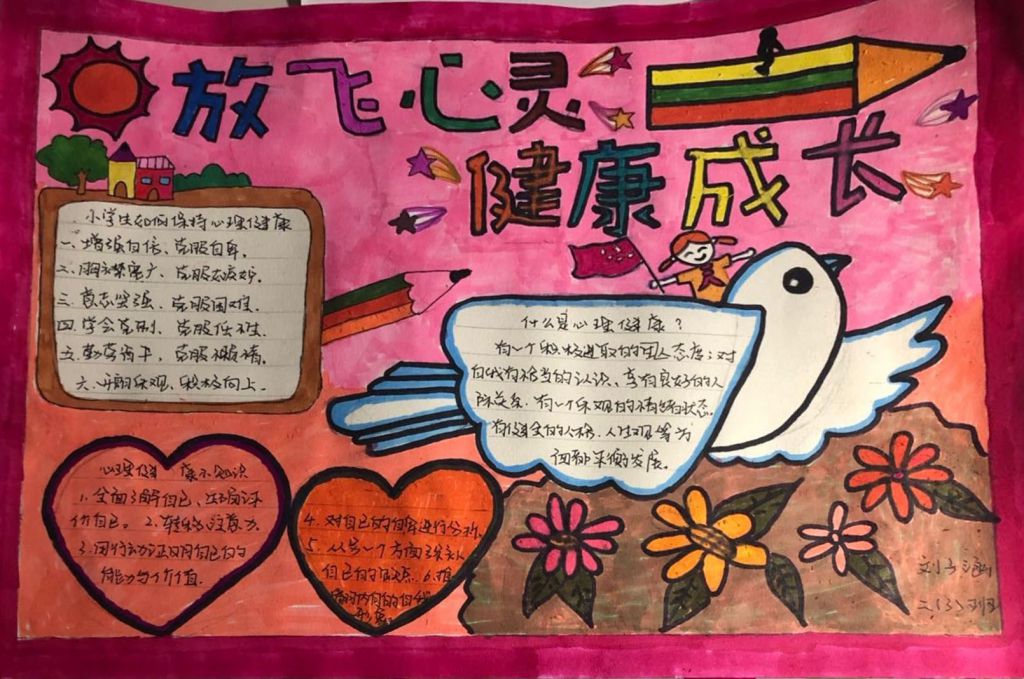 放飞心灵
健康成长
小学生如何保持心理健康
一、增强自信、克服自卑。
二、胸襟宽广、克服忌妒。
三、意志坚强、克服困难。
四、学会克制、克服任性。
五、勤劳肯干、克服懒惰。
六、开朗乐观、积极向上。
什么是心理健康?
有一个积极进取的人态度;对
自我有恰当的认识、享有良好的人
际关系、有一个乐观的情绪状态。
有健全的人格、人生观等为
面和平衡发展。
心理健康小知识
1.全面了解自己、正确评
价自己。2.转移注意力。
3.用行动证明自己的
能力与价值.
4.对自己的自卑进行分析.
5.从另一个方面弥补
自己的弱点.6.
内自的自我
二(3)班